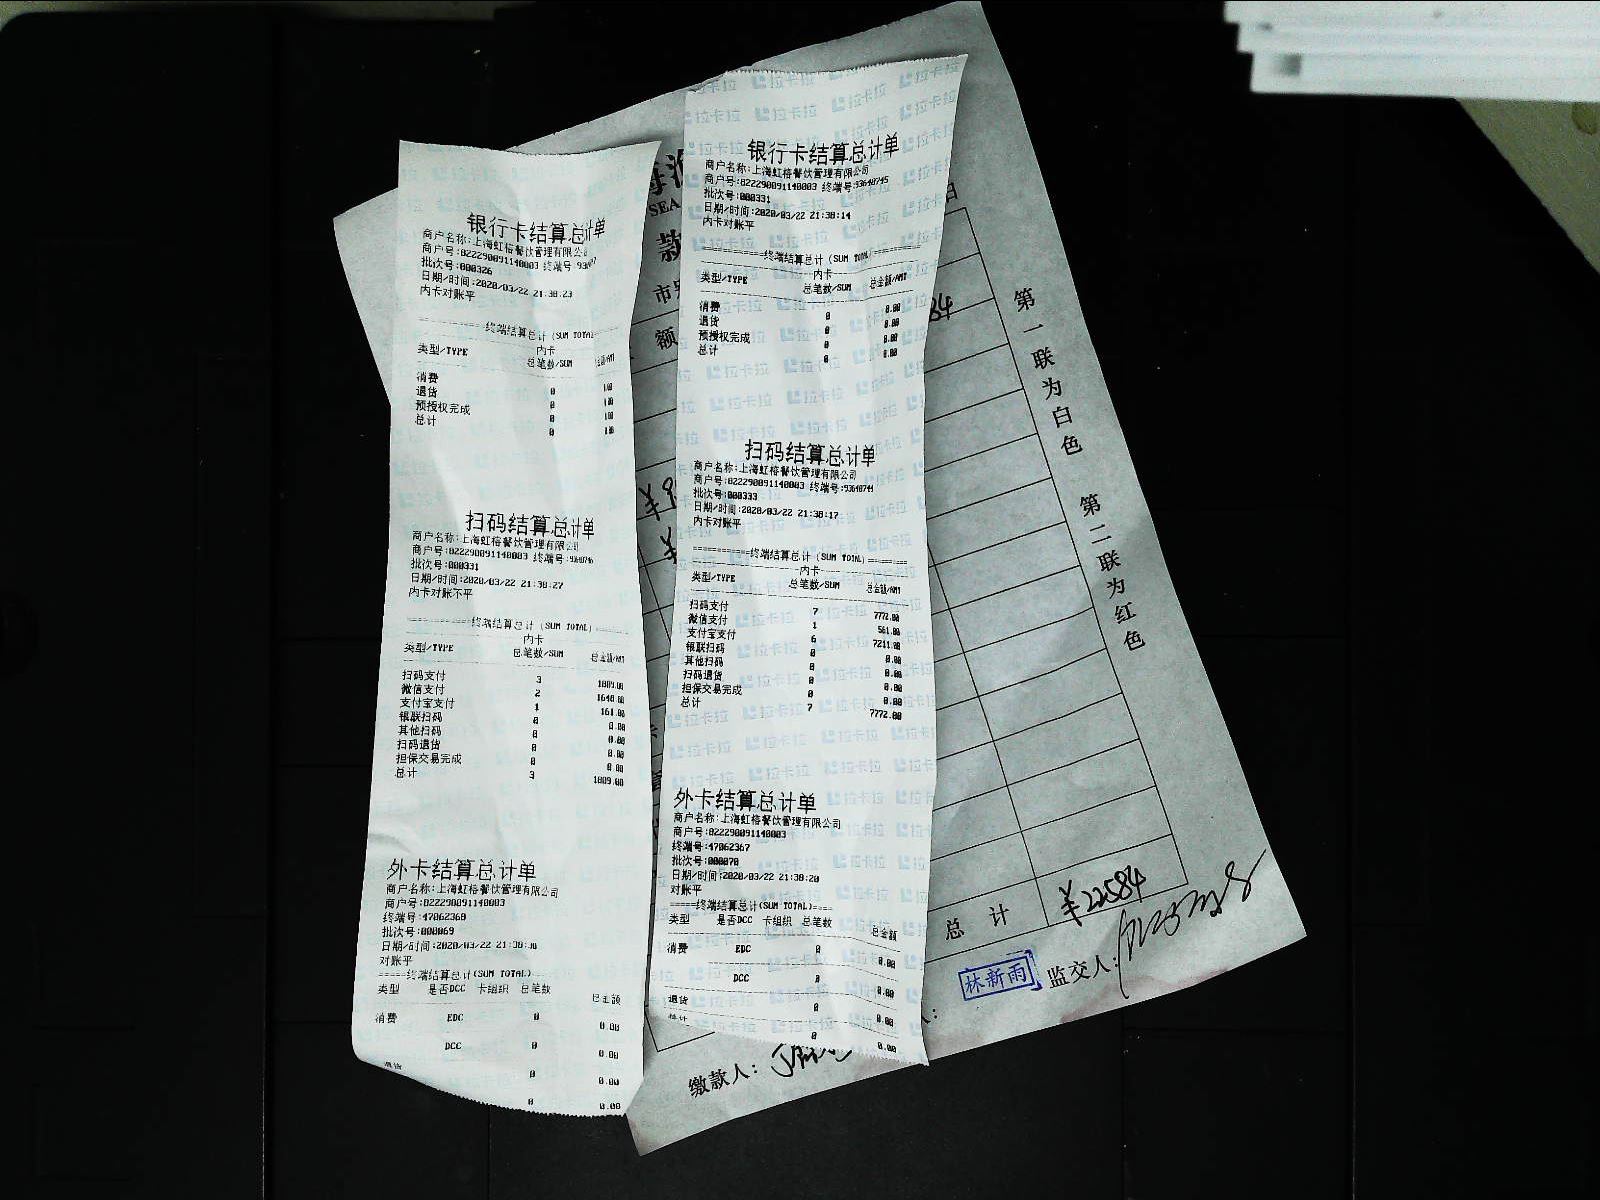 银行卡结算总计单
商户名称:上海虹榕餐饮管理有限公
商户号:822290091140003 终端号:
批次号:000326
日期/时间:2020/03/22 21:38:23
内卡对账平
======终端结算总计(SUM TOTAL
内卡
类型/TYPE 总笔数/SUM
消费 0
退货 0
预授权完成 0
总计 0
扫码结算总计单
商户名称:上海虹榕餐饮管理有限公司
商户号:822290091140003 终端号:
批次号:000331
日期/时间:2020/03/22 21:38:27
内卡对账不平
======终端结算总计(SUM TOTAL)======
内卡
类型/TYPE 总笔数/SUM 总金额/AMT
扫码支付 3 1809.00
微信支付 2 1648.00
支付宝支付 1 161.00
银联扫码 0 0.00
其他扫码 0 0.00
扫码退货 0 0.00
担保交易完成 0 0.00
总计 3 1809.00
外卡结算总计单
商户名称:上海虹榕餐饮管理有限公司
商户号:822290091140003
终端号:47062368
批次号:000069
日期/时间:2020/03/22 21:38:30
对账平
=====终端结算总计(SUM TOTAL)=====
类型 是否DCC 卡组织 总笔数 总金额
消费 EDC 0 0.00
DCC 0 0.00
退货 0 0.00
0 0.00
银行卡结算总计单
商户名称:上海虹榕餐饮管理有限公司
商户号:822290091140003 终端号:93640745
批次号:000331
日期/时间:2020/03/22 21:38:14
内卡对账平
======终端结算总计(SUM TOTAL)======
内卡
类型/TYPE 总笔数/SUM 总金额/AMT
消费 0 0.00
退货 0 0.00
预授权完成 0 0.00
总计 0 0.00
扫码结算总计单
商户名称:上海虹榕餐饮管理有限公司
商户号:822290091140003 终端号:93640744
批次号:000333
日期/时间:2020/03/22 21:38:17
内卡对账平
======终端结算总计(SUM TOTAL)======
内卡
类型/TYPE 总笔数/SUM 总金额/AMT
扫码支付 7 7772.00
微信支付 1 561.00
支付宝支付 6 7211.00
银联扫码 0 0.00
其他扫码 0 0.00
扫码退货 0 0.00
担保交易完成 0 0.00
总计 7 7772.00
外卡结算总计单
商户名称:上海虹榕餐饮管理有限公司
商户号:822290091140003
终端号:47062367
批次号:000070
日期/时间:2020/03/22 21:38:20
对账平
=====终端结算总计(SUM TOTAL)=====
类型 是否DCC 卡组织 总笔数 总金额
消费 EDC 0 0.00
DCC 0 0.00
退货 0 0.00
总计 0 0.00
SEA
款
日
额
84
第一联为白色 第二联为红色
总 计 ¥22584
林新雨 监交人:
缴款人: